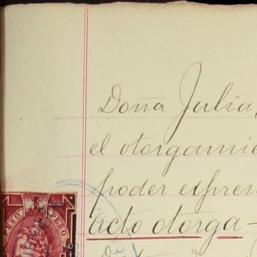 Doña Julia,
el otorgamie
poder expres
acto otorga-